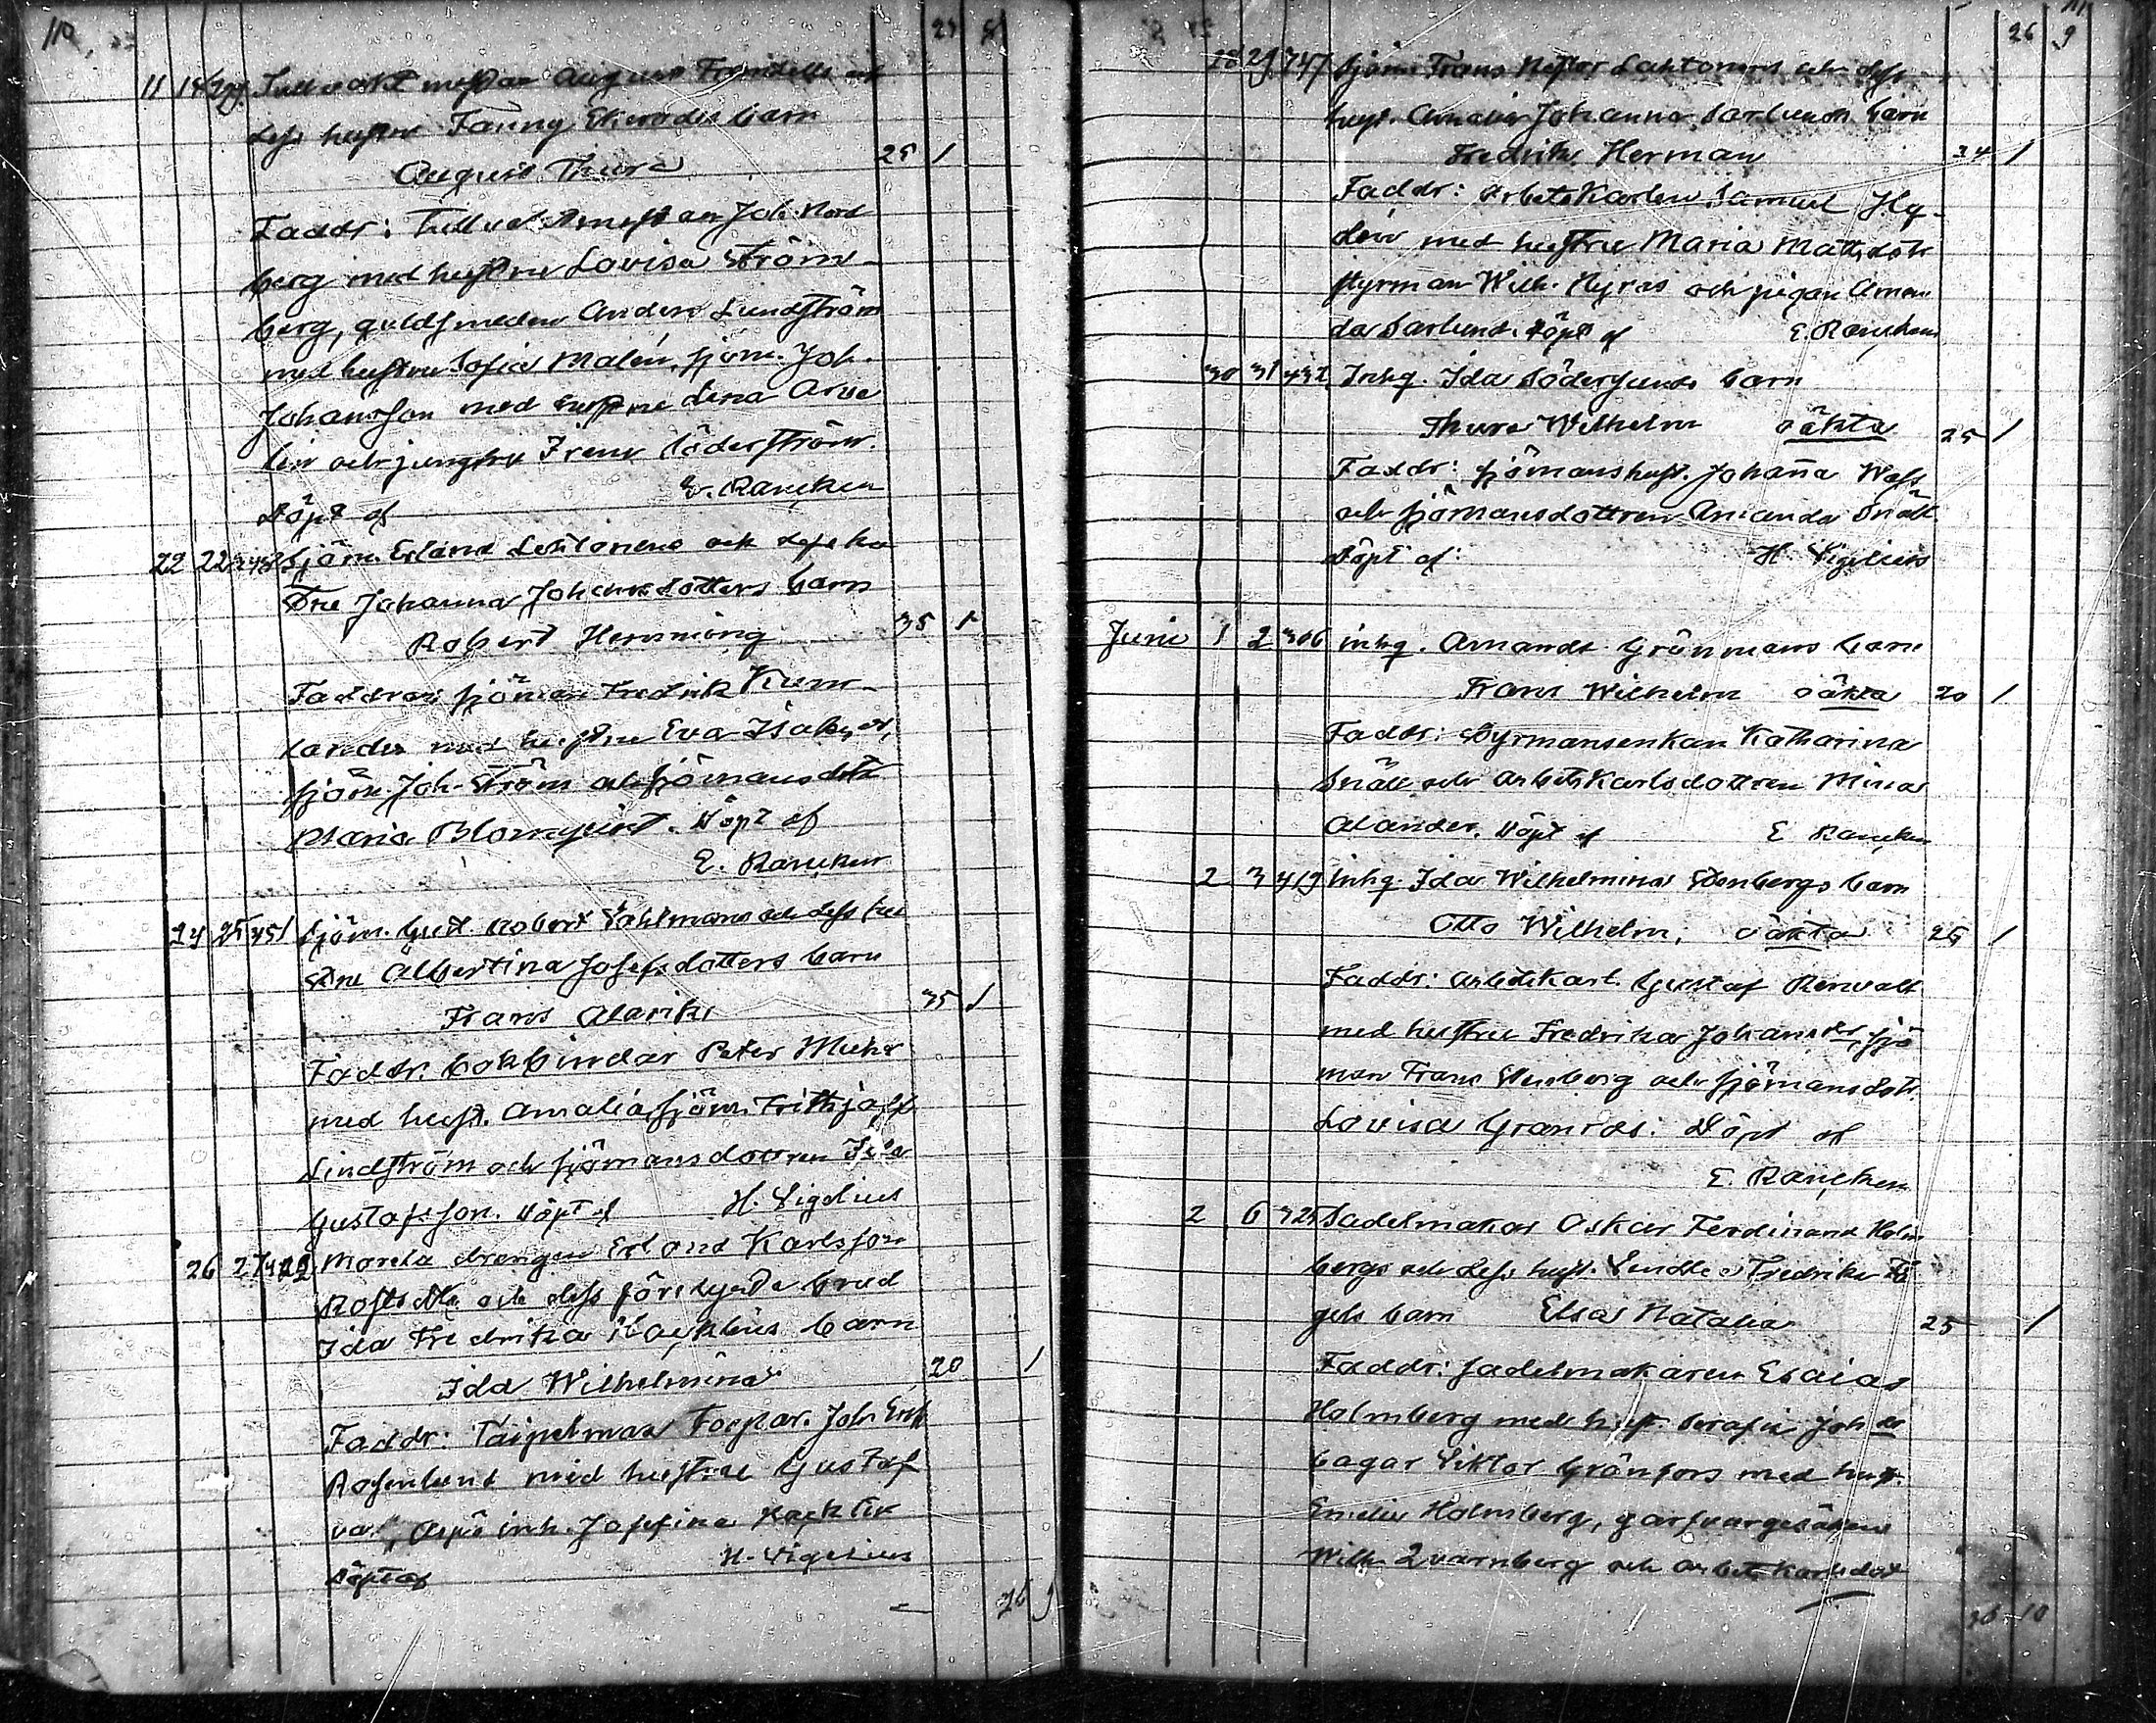 110 27 8
11 14 August
dess hustru Fanny Ekerodes barn
August Thure 25 1
Faddr: Joh. Nord
berg med hustru Lovisa Ström-
berg, guldsmeden Anders Lundström
med hustru Sofia Malén, sjöm. Joh.
Johansson med hustru Lina Arve
lin och jungfru Irene Söderström.
Döpt af E. Rancken
22 22 Sjöm. Erland och dess hu
stru Johanna Johansdotters barn
Robert Hemming 35 1
Faddrar: sjöman Fredrik Kum-
lander med hustru Eva Isaksdr,
sjöm. Joh. Ström och sjömansdott
Maria Blomqvist. Döpt af
E. Rancken
24 25 451 Sjöm. Gust. Robert Sahlmans och dess hu
stru Albertina Josefsdotters barn
Frans Alarik 35 1
Faddr. bokbindar Peter Muhr
med hust. Amalia, sjöm. Frithjof
Lindström och sjömansdottren Ida
Gustafsson. Döpt af H. Sigelius
26 27 drengen Erland Karlsson
och dess förelgda brud
Ida Fredrika barn
Ida Wilhelmina 20 1
Faddr: Joh. Erik
Rosenlund med hustru Gustaf
va, inh. Josefina
Döpt af H. Sigelius
26 9
26 9
28 29 747 Sjöm. Frans Nestor Laktonens och dess
hust. Amalia Johanna Sarlunds barn
Fredrik Herman 34 1
Faddr: arbetskarlen Samuel Hy-
dén med hustru Maria Mattsdotr
styrman Wilh. Nyros och pigan Aman
da Sarlund. Döpt af E. Rancken
30 31 432 Inhq. Ida Söderlunds barn
Thure Wilhelm oäkta 25 1
Faddr: sjömanshust. Johanna Wass
och sjömansdottren Amanda Snäll.
Döpt af: H. Sigelius
Juni 1 2 306 inhq. Amanda Grönmans barn
Frans Wilhelm oäkta 20 1
Faddr: Styrmansenkan Katharina
Snäll och arbetskarlsdottren Mina
Alander. Döpt af E Rancken
2 3 419 Inhq. Ida Wilhelmina Stenbergs barn
Otto Wilhelm; oäkta 26 1
Faddr: arbetskarl. Gustaf Renvall
med hustru Fredrika Johansdr, sjö
man Frans Stenberg och sjömansdotr.
Lovisa Granros: Döpt af
E. Rancken
2 6 325 Sadelmakar Oskar Ferdinand Holm
bergs och dess hust. Fredrika
gels barn Elsa Natalia 25 1
Faddr: sadelmakaren Esaias
Holmberg med hust. Serafia Johdr
bagar Viktor Grönfors med hust.
Emelia Holmberg, garfvargesällen
Wilh. Qvarnberg och arbetskarlsdot
10